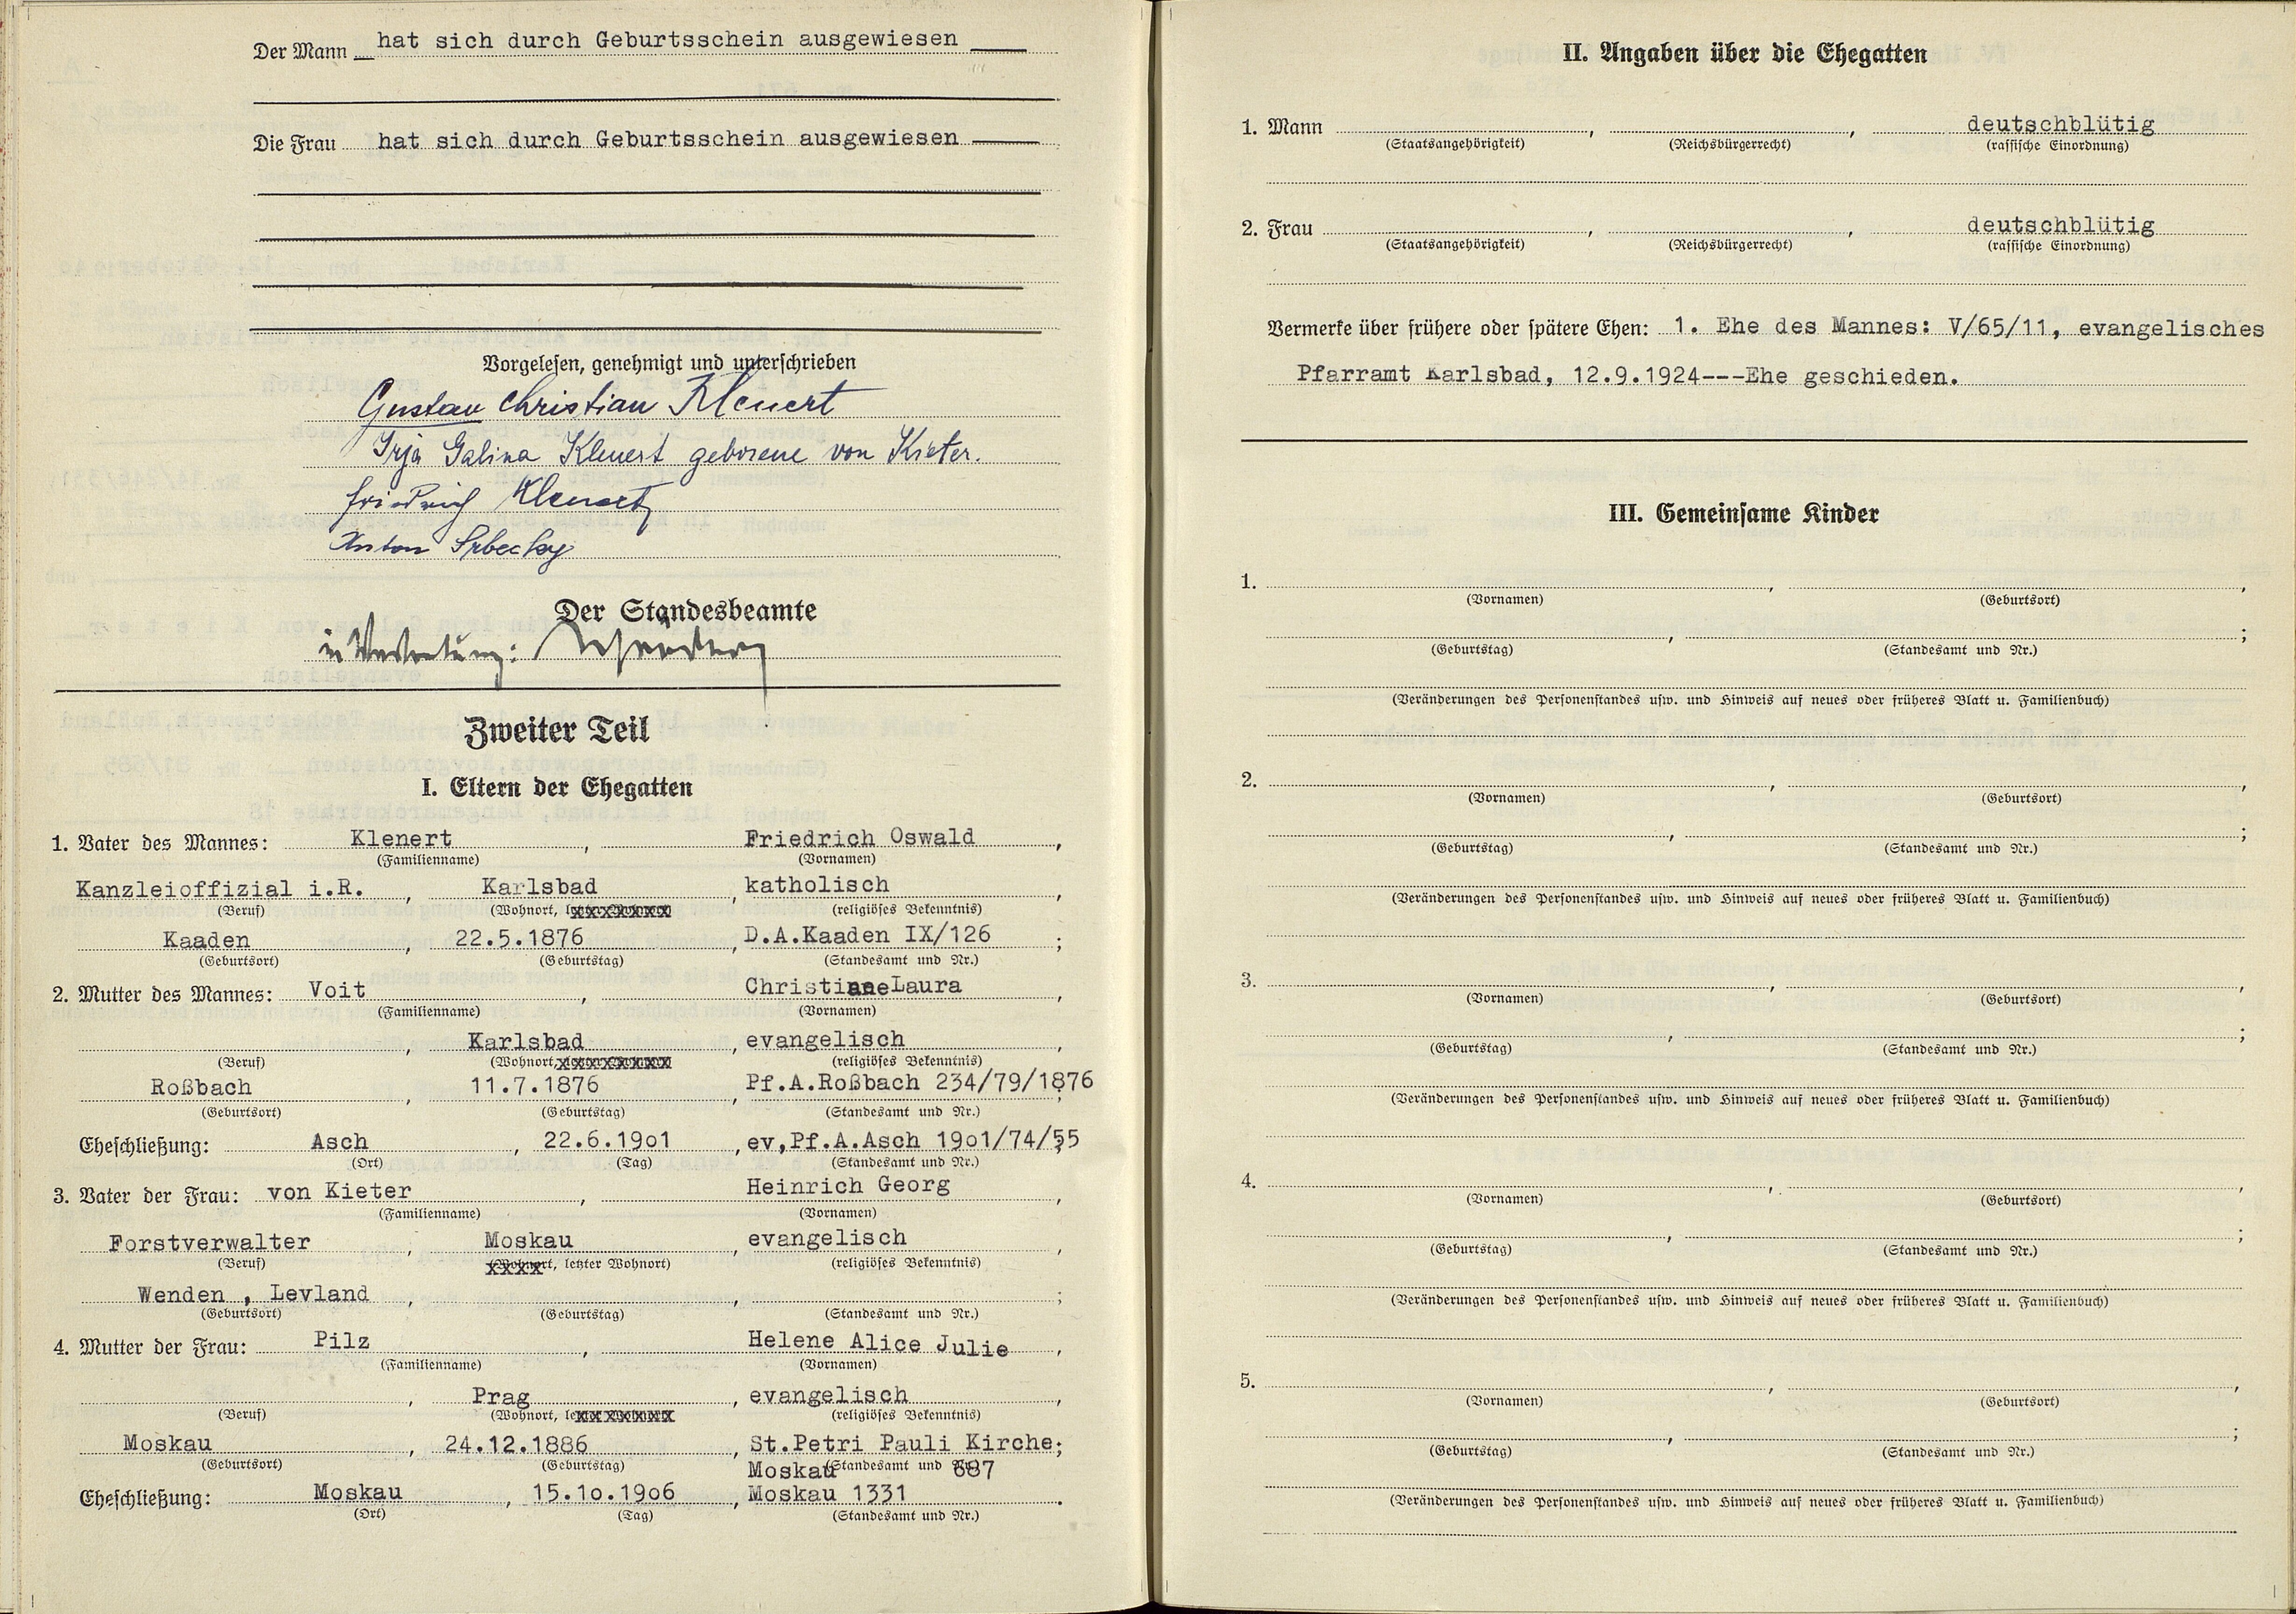 Der Mann hat sich durch Geburtsschein ausgewiesen
Die Frau hat sich durch Geburtsschein ausgewiesen
Vorgelesen, genehmigt und unterschrieben
Gustav Christian Klenert
Irja Galina Klenert geborene von Kieter.
Friedrich Klenert
Anton Srbecky
Der Standesbeamte
in Vertretung:
Zweiter Teil
I. Eltern der Ehegatten
1. Vater des Mannes: Klenert, Friedrich Oswald,
(Familienname) (Vornamen)
Kanzleioffizial i.R., Karlsbad, katholisch,
(Beruf) (Wohnort, (religiöses Bekenntnis)
Kaaden, 22.5.1876, D.A.Kaaden IX/126;
(Geburtsort) (Geburtstag) (Standesamt und Nr.)
2. Mutter des Mannes: Voit, Christiane Laura,
(Familienname) (Vornamen)
, Karlsbad, evangelisch,
(Beruf) (Wohnort, (religiöses Bekenntnis)
Roßbach, 11.7.1876, Pf.A.Roßbach 234/79/1876;
(Geburtsort) (Geburtstag) (Standesamt und Nr.)
Eheschließung: Asch, 22.6.19o1, ev,Pf.A.Asch 19o1/74/55;
(Ort) (Tag) (Standesamt und Nr.)
3. Vater der Frau: von Kieter, Heinrich Georg,
(Familienname) (Vornamen)
Forstverwalter, Moskau, evangelisch,
(Beruf) (Wohnort, letzter Wohnort) (religiöses Bekenntnis)
Wenden , Levland, , ;
(Geburtsort) (Geburtstag) (Standesamt und Nr.)
4. Mutter der Frau: Pilz, Helene Alice Julie,
(Familienname) (Vornamen)
, Prag, evangelisch,
(Beruf) (Wohnort, (religiöses Bekenntnis)
Moskau, 24.12.1886, St.Petri Pauli Kirche;
(Geburtsort) (Geburtstag) Moskau (Standesamt und Nr.) 687
Eheschließung: Moskau, 15.1o.19o6, Moskau 1331.
(Ort) (Tag) (Standesamt und Nr.)
II. Angaben über die Ehegatten
1. Mann , , deutschblütig
(Staatsangehörigkeit) (Reichsbürgerrecht) (rassische Einordnung)
2. Frau , , deutschblütig
(Staatsangehörigkeit) (Reichsbürgerrecht) (rassische Einordnung)
Vermerke über frühere oder spätere Ehen: 1. Ehe des Mannes: V/65/11, evangelisches
Pfarramt Karlsbad, 12.9.1924---Ehe geschieden.
III. Gemeinsame Kinder
1. , ,
(Vornamen) (Geburtsort)
, ;
(Geburtstag) (Standesamt und Nr.)
(Veränderungen des Personenstandes usw. und Hinweis auf neues oder früheres Blatt u. Familienbuch)
2. , ,
(Vornamen) (Geburtsort)
, ;
(Geburtstag) (Standesamt und Nr.)
(Veränderungen des Personenstandes usw. und Hinweis auf neues oder früheres Blatt u. Familienbuch)
3. , ,
(Vornamen) (Geburtsort)
, ;
(Geburtstag) (Standesamt und Nr.)
(Veränderungen des Personenstandes usw. und Hinweis auf neues oder früheres Blatt u. Familienbuch)
4. , ,
(Vornamen) (Geburtsort)
, ;
(Geburtstag) (Standesamt und Nr.)
(Veränderungen des Personenstandes usw. und Hinweis auf neues oder früheres Blatt u. Familienbuch)
5. , ,
(Vornamen) (Geburtsort)
, ;
(Geburtstag) (Standesamt und Nr.)
(Veränderungen des Personenstandes usw. und Hinweis auf neues oder früheres Blatt u. Familienbuch)